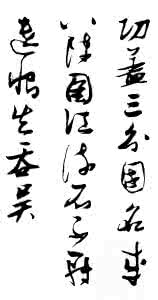 功盖三分国名成
八阵图江流石不转
遗恨失吞吴